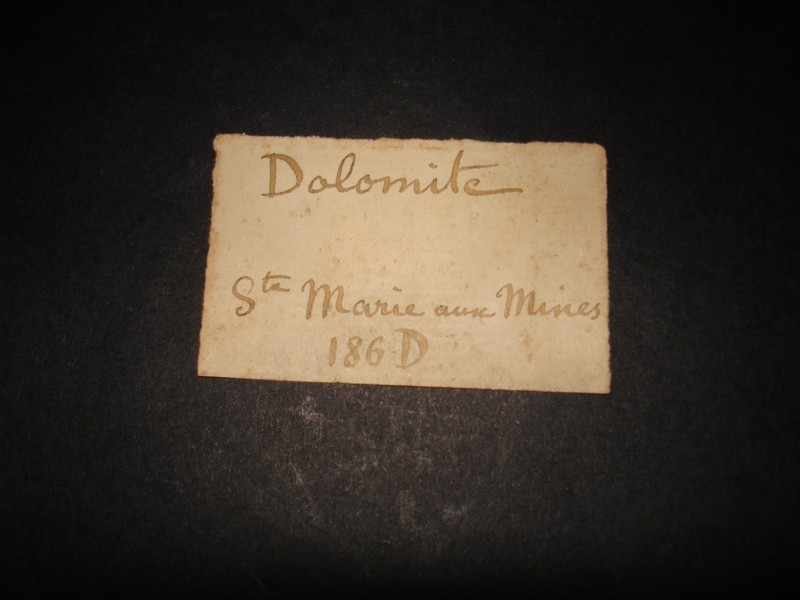 Dolomite
Ste Marie aux Mines
186 D